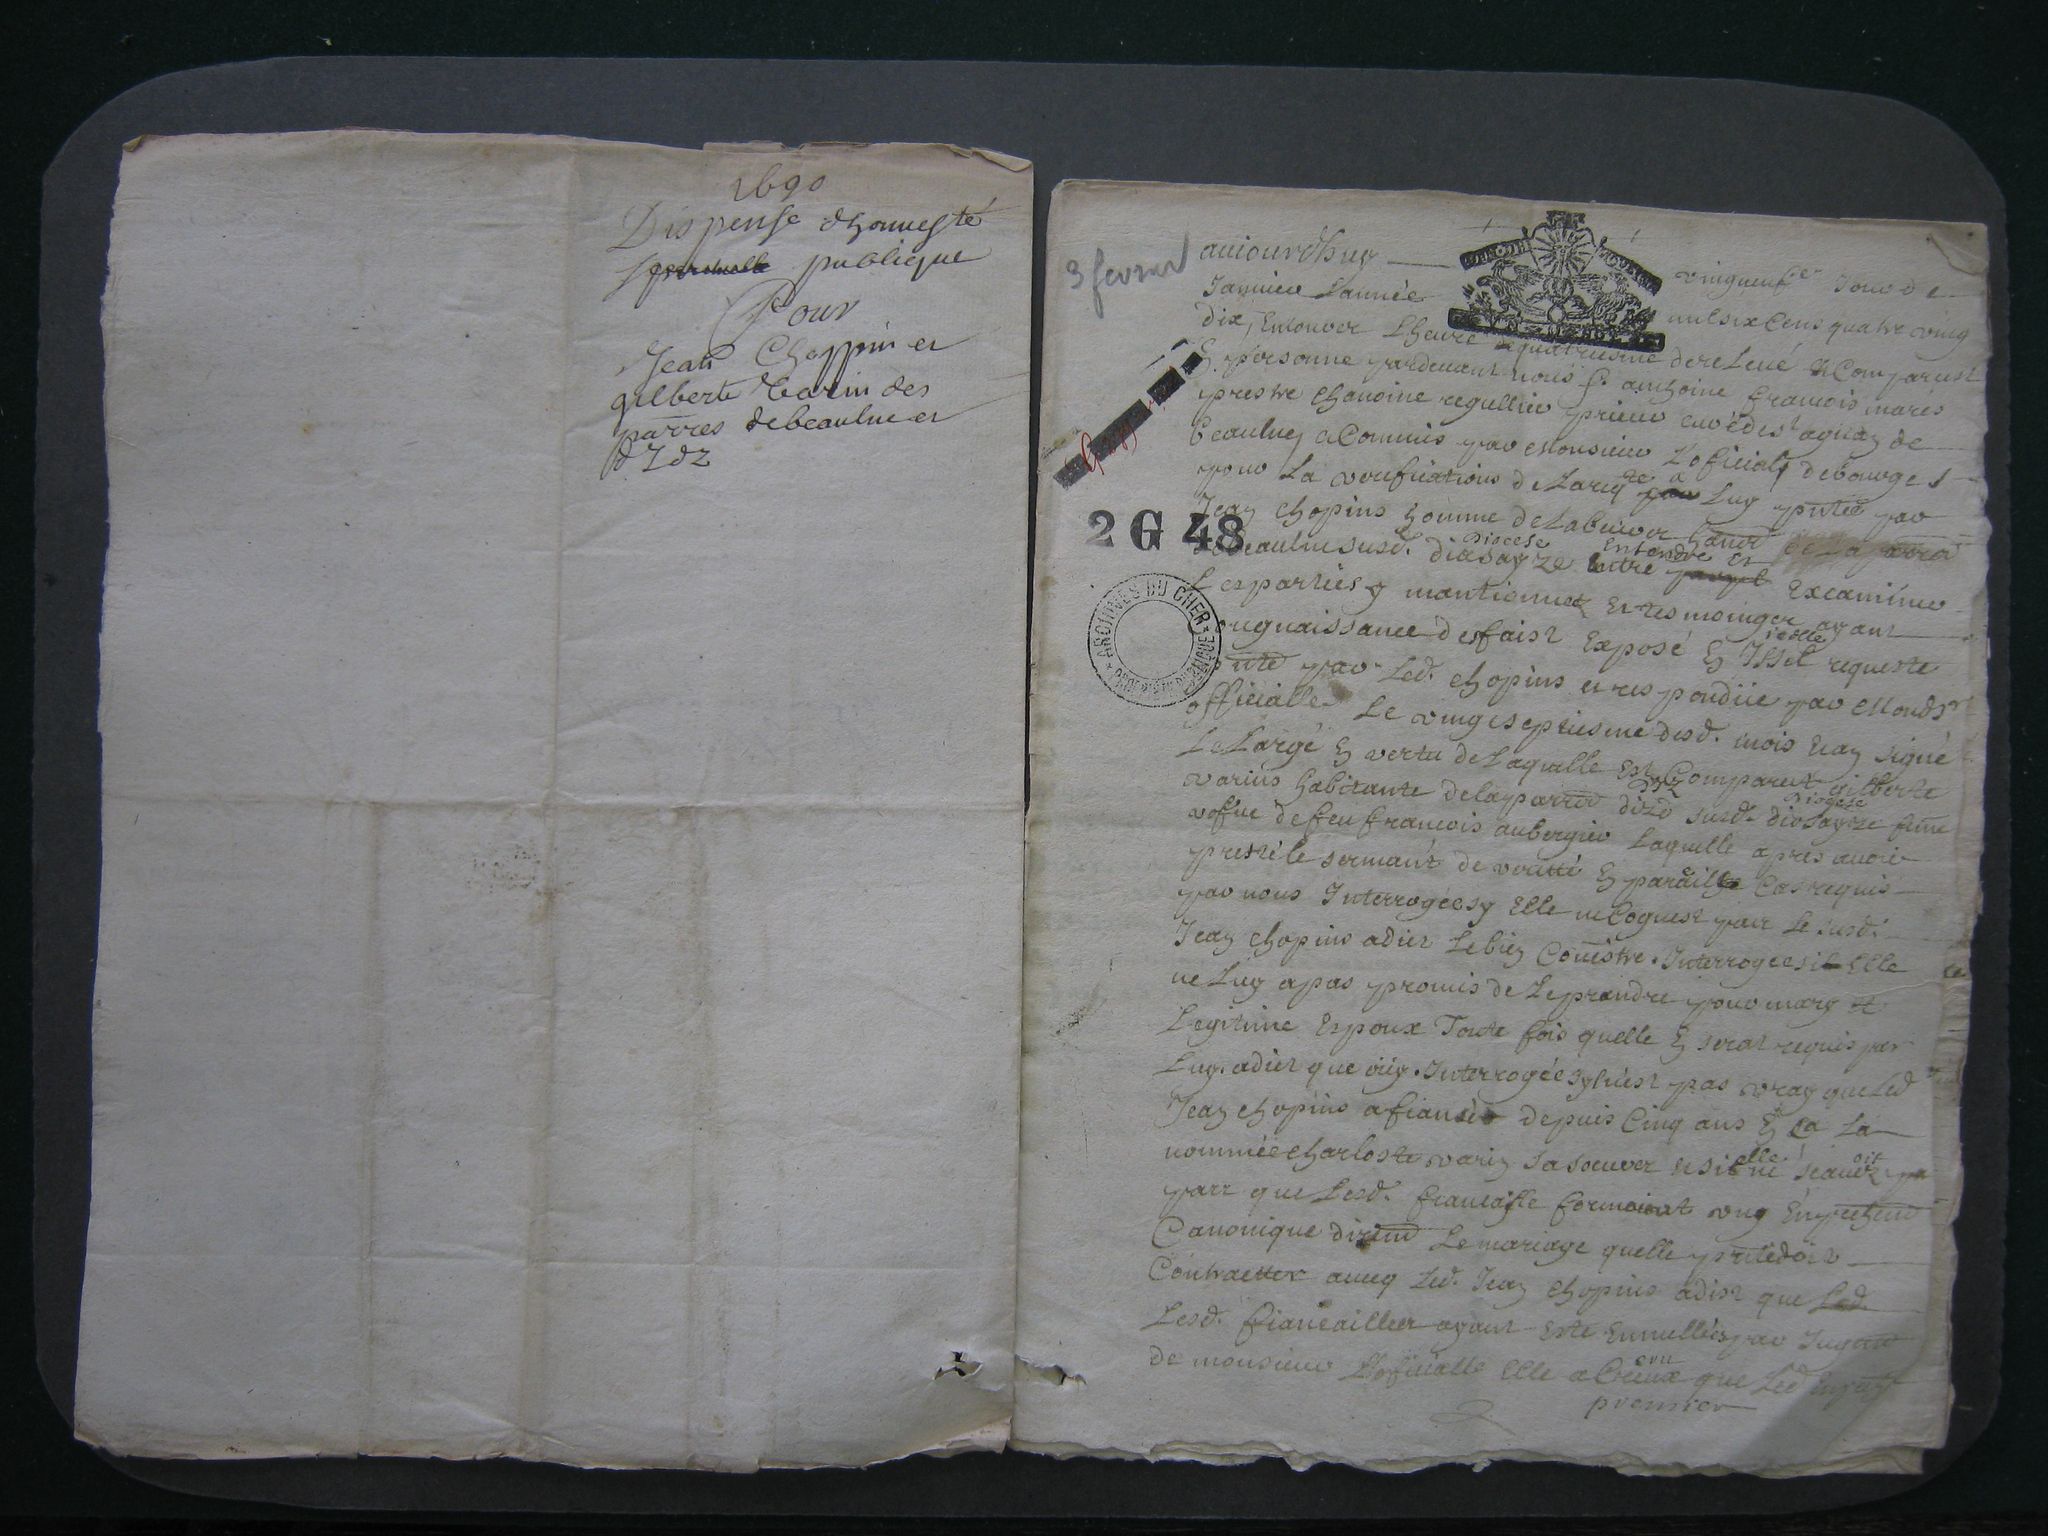 1690
Dispense dhonnesté
publicque
Pour
Jean Choppin et
gilberte Varin des
parres de beaulne et
d'Idz
3 fevrier
aujourdhuy vingneufe Jour de
Janvier Lannée mil six Cens quatre ving
dix, Environ Lheure quatriesme de relevé est Comparust
En personne pardevant nous f. anthoine francois marés
prestre Chanoine regullier prieur curé de st aignan de
beaulne Commis par Monsieur Lofficial de bourges
pour La verifications de Lareqte a Luy pntée par
Jean Chopins homme de Labeur
2 G 48
beaulne susd. diocese entendre et Examiner
Les partiës y mantionnez Et tesmoinger ayant
cognaissance des faist Exposé En icelle requeste
pntée par Led. Chopins et respondüe par Monsr
officialle Le vingt septiesme desd. mois Et an signé
LeLargé En vertu de Laquelle Est Comparuë gilberte
varins habitante de la parroi susd. diocese
vefve de feu francois aubergier Laquelle apres avoir
presté le sermant de verité En pareille Cas requis
par nous Interrogée sy Elle ne Cognest pas Le susd.
Jean Chopins a dict Le bien Conestre. Interrogée si Elle
ne Luy a pas promis de Le prendre pour mary et
Legitime Espoux Toute fois quelle En serat requis par
Luy. a dict que ouy. Interrogée sy n'est pas vray que Led
Jean Chopins a fiansé depuis Cinq ans En ça La
nommée Charloste varin sa soeuver et si elle ne sçavoit
pars que Lesd. fiancaille formoient ung Enpeschemt
Canonique dirimt Le mariage quelle pntedoit
Contracter avecq Led. Jean Chopins a dist que Led.
Lesd. fiancailles ayant Este Ennullées par Jugemt
de monsieur Lofficialle Elle a creu que Led
premier
ARCHIVES DU CHER